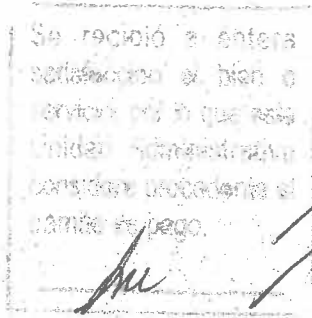 Se recibió a entera
satisfacción el bien o
servicio por lo que esta
Unidad Administrativa
considera procedente el
trámite de pago.